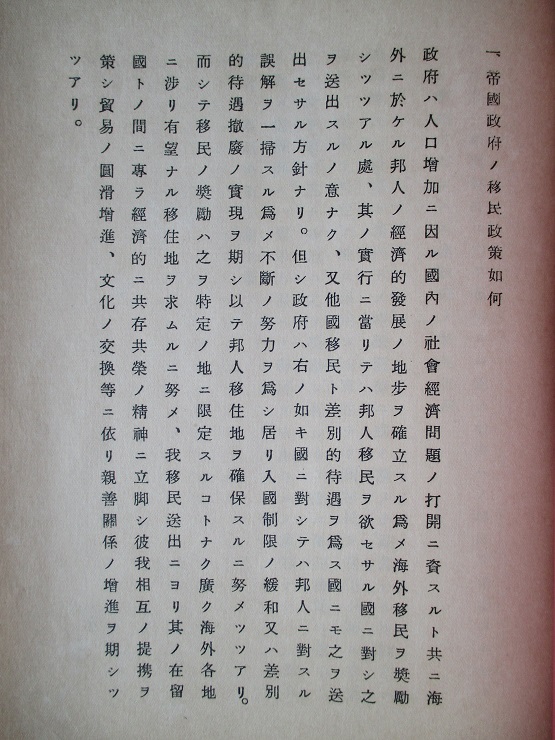 一、帝國政府ノ移民政策如何
政府ハ人口增加ニ因ル國內ノ社會經濟問題ノ打開ニ資スルト共ニ海
外ニ於ケル邦人ノ經濟的發展ノ地步ヲ確立スル爲メ海外移民ヲ奬勵
シツツアル處、其ノ實行ニ當リテハ邦人移民ヲ欲セサル國ニ對シ之
ヲ送出スルノ意ナク、又他國移民ト差別的待遇ヲ爲ス國ニモ之ヲ送
出セサル方針ナリ。但シ政府ハ右ノ如キ國ニ對シテハ邦人ニ對スル
誤解ヲ一掃スル爲メ不斷ノ努力ヲ爲シ居リ入國制限ノ緩和又ハ差別
的待遇撤廢ノ實現ヲ期シ以テ邦人移住地ヲ確保スルニ努メツツアリ。
而シテ移民ノ奬勵ハ之ヲ特定ノ地ニ限定スルコトナク廣ク海外各地
ニ涉リ有望ナル移住地ヲ求ムルニ努メ、我移民送出ニヨリ其ノ在留
國トノ間ニ專ラ經濟的ニ共存共榮ノ精神ニ立脚シ彼我相互ノ提携ヲ
策シ貿易ノ圓滑增進、文化ノ交換等ニ依リ親善關係ノ增進ヲ期シツ
ツアリ。